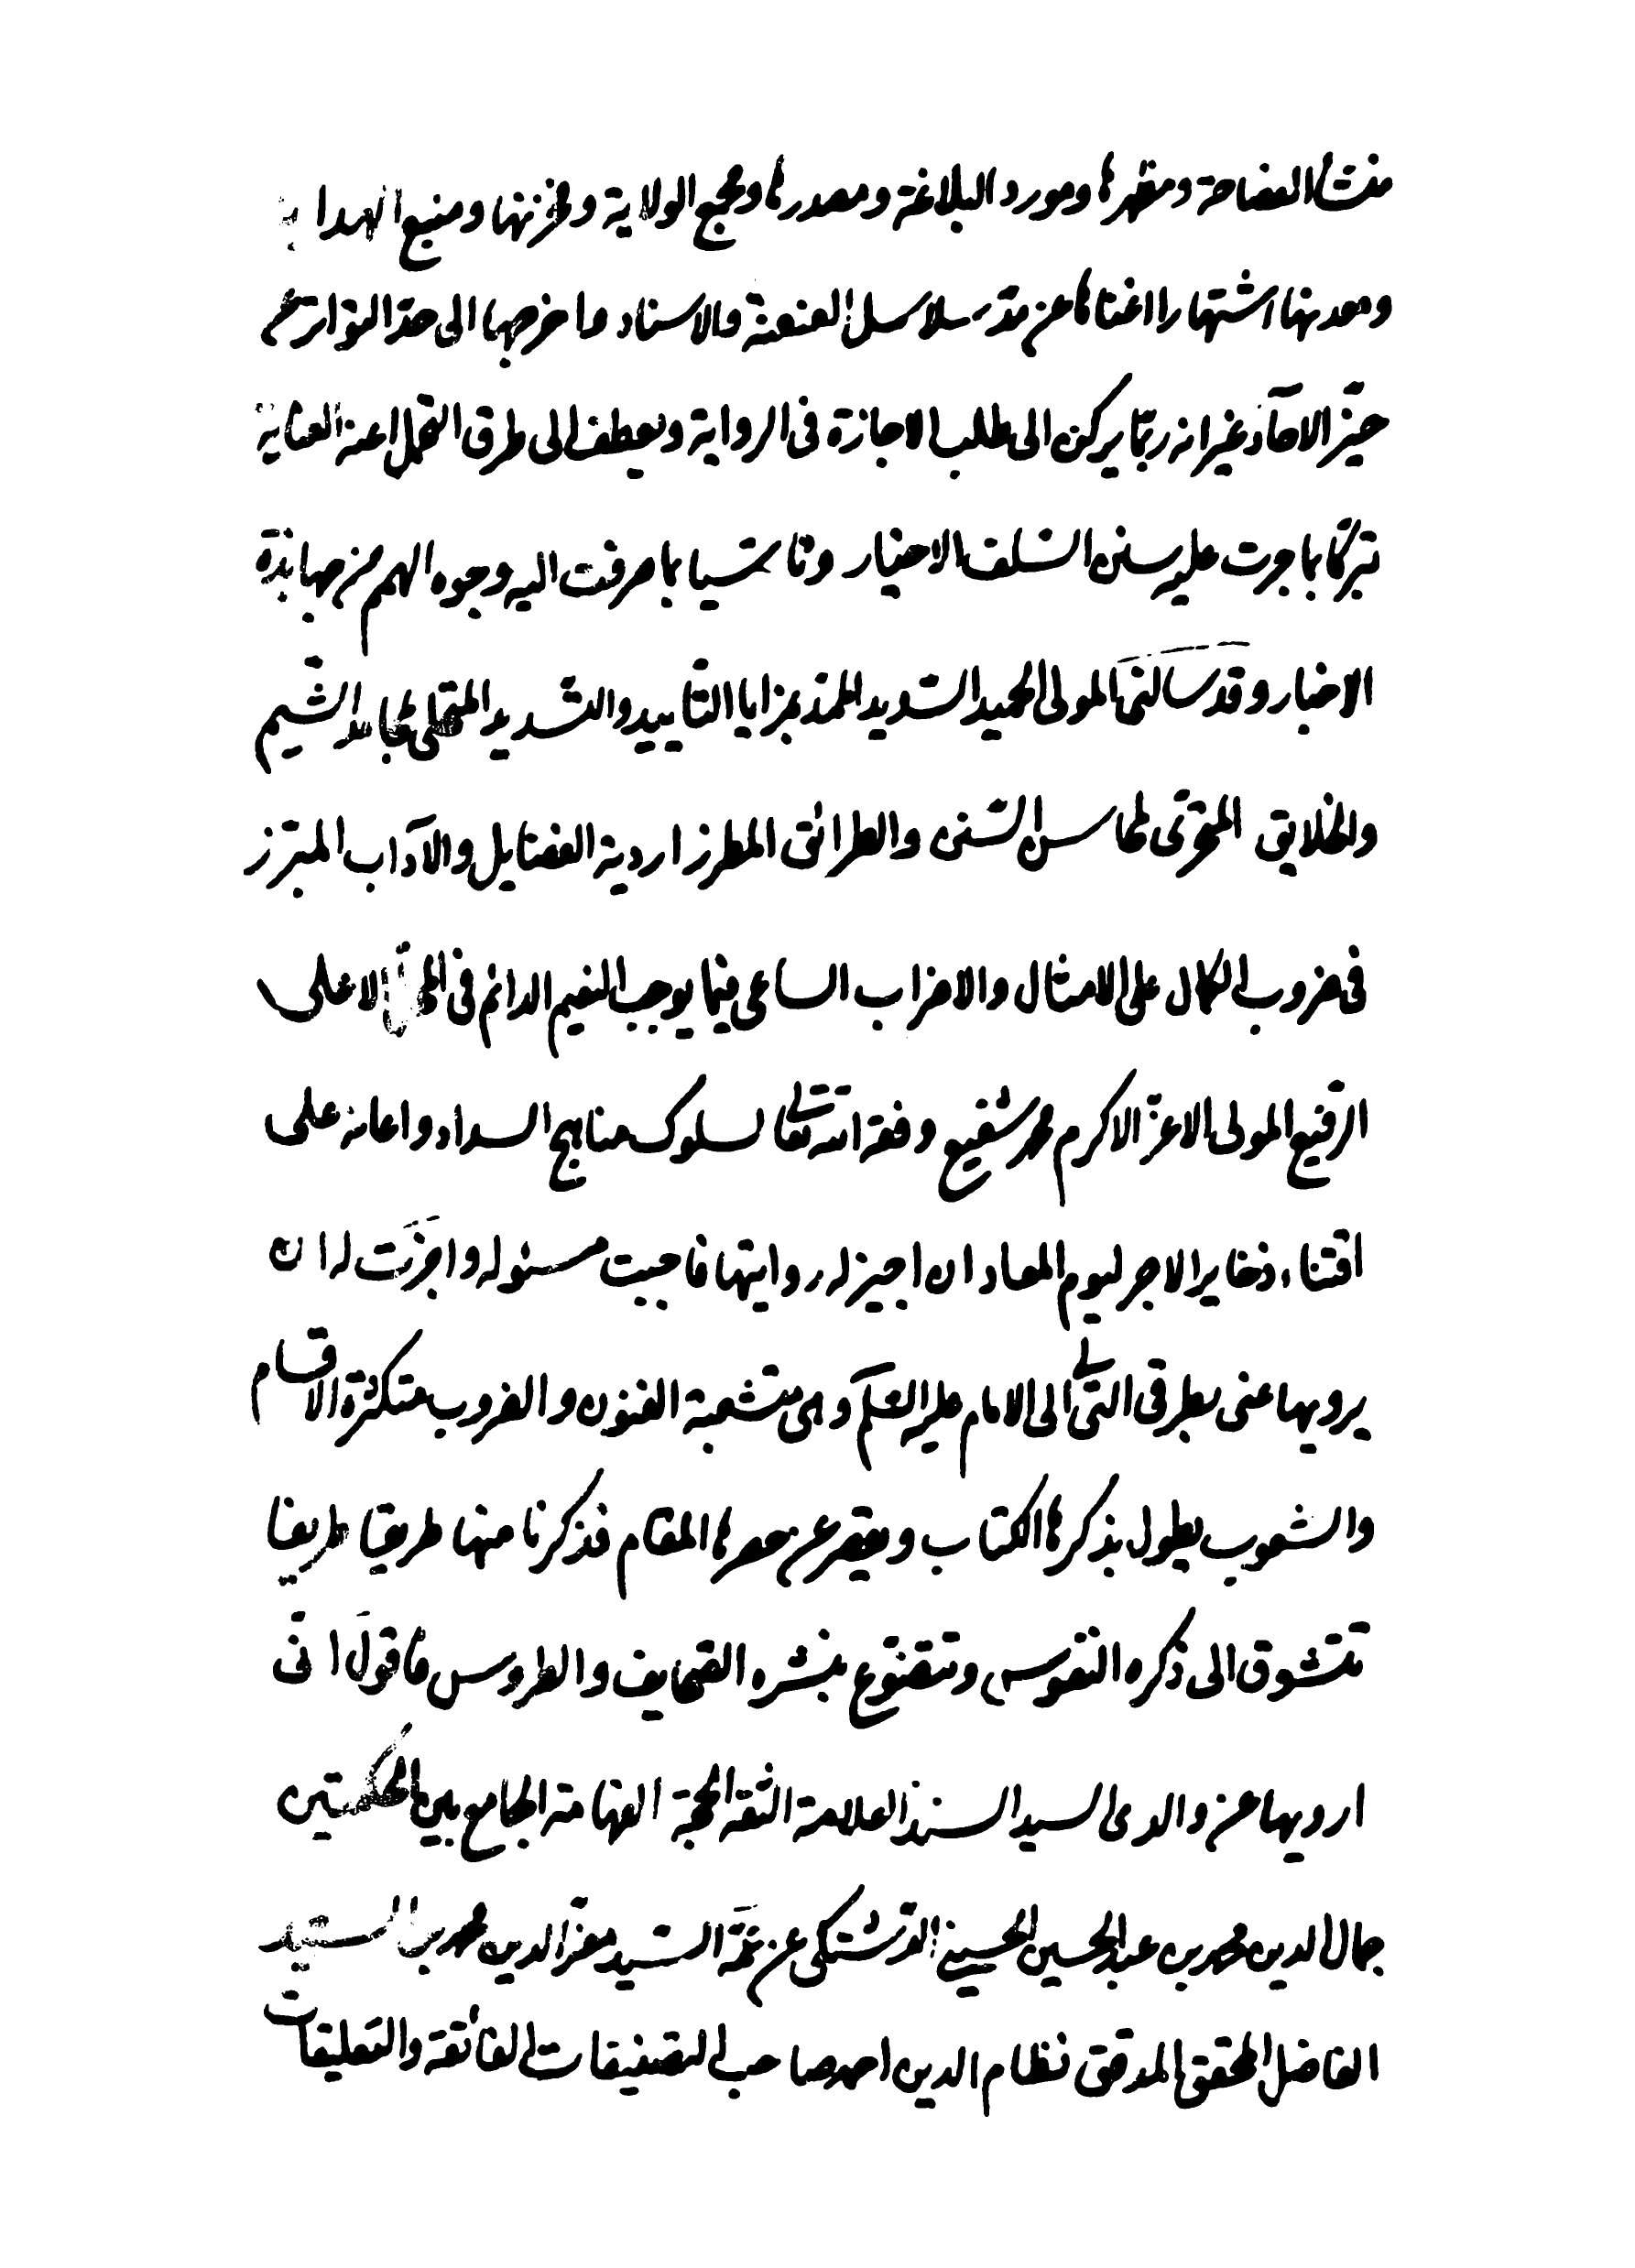 منشأ الفصاحة ومظهرها ومورد البلاغة ومصدرها ومجمع الولاية ومخزنها ومنبع الهداية
ومعدنها اشتهارا اغناها عن مدّ سلاسل العنعنة والاسناد واخرجها الى حدّ التواتر عن
حيّز الآحاد غير انه ربّما يركن الى طلب الاجازة فى الرواية ويعطف الى طرق التحمّل اعنة العناية
تبركا بما جرت عليه سنن السّلف الاخيار وتاسّيا بما صرفت اليه وجوه الهمم من جهابذة
الاخبار وقد سالنى المولى الحميد السّديد الممدّ بمزايا التّأييد والتّسديد المتحلّى بمحامد الشّيم
والخلايق المحتوى لمحاسن السّنن والطرائق المطرز اردية الفضايل والآداب المبرّز
فى ضروب الكمال على الامثال والاضراب الساعى فيما يوجب النعيم الدائم فى المحلّ الاعلى
الرفيع المولى الاعزّ الاكرم محمد شفيع وفقه الله تعالى لسلوك مناهج السداد واعانه على
اقتناء ذخاير الاجر ليوم المعاد ان اجيز له روايتها فاجبت مسئوله واجزت له ان
يرويها عنى بطرقى التى لى الى الامام عليه السّلم وهى متشعبة الفنون والضروب متكثرة الاقسام
والشعوب يطول بذكرها الكتاب ويقصر عن حصرها المقام فذكرنا منها طريقا طريفا
تتشوق الى ذكره النفوس وتتضوّع بنشره الصّحايف والطروس فاقول انى
ارويها عن والدى السيد السند العلامة الثقة الحجة الفهامة الجامع بين الحكمتين
جمال الدين محمد بن عبد الحسين الحسينى الدشتكى عن عمّه السّيد معزّ الدين محمد بن السّيد
الفاضل المحقق المدقق نظام الدين احمد صاحب التصنيفات الفائقة والتعليقات